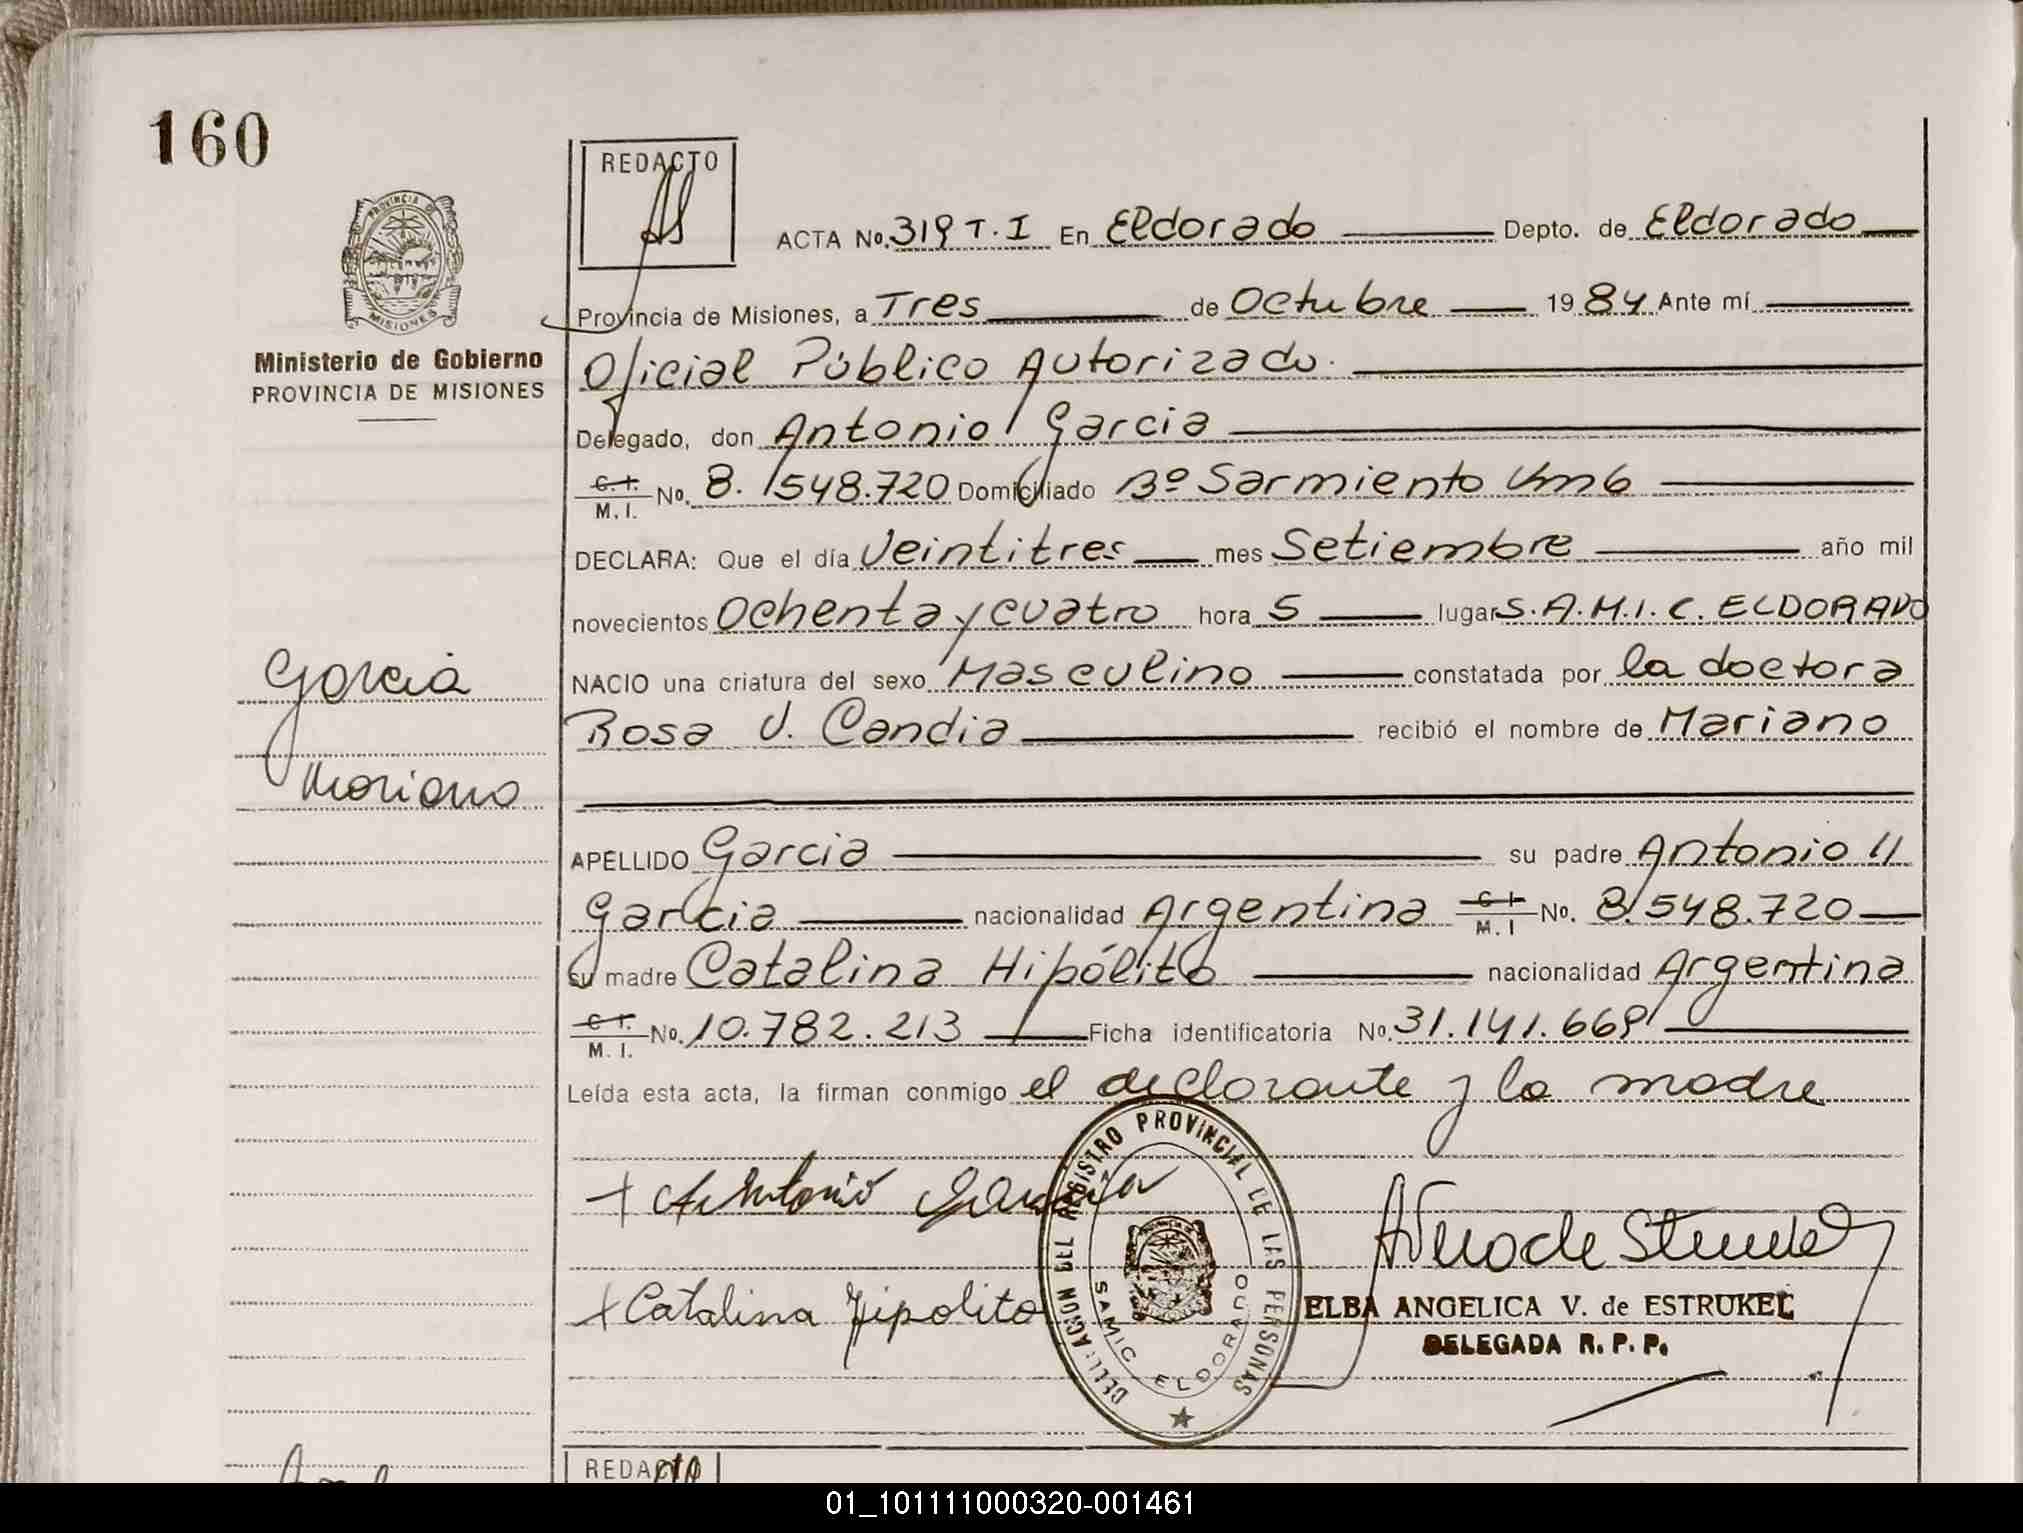 160
REDACTO
PROVINCIA DE
MISIONES
Ministerio de Gobierno
PROVINCIA DE MISIONES
ACTA No. 319 T. I En Eldorado Depto. de Eldorado
Provincia de Misiones, a Tres de Octubre 1984 Ante mí
Oficial Público Autorizado.
Delegado, don Antonio Garcia
C.I. M.I. No. 8.548.720 Domiciliado Bº Sarmiento Km6
DECLARA: Que el día Veintitres mes Setiembre año mil
novecientos Ochenta y cuatro hora 5 lugar S.A.M.I.C. ELDORADO
NACIO una criatura del sexo Masculino constatada por la doctora
Rosa V. Candia recibió el nombre de Mariano
Garcia
Mariano
APELLIDO Garcia su padre Antonio
Garcia nacionalidad Argentina C.I. M.I No. 8.548.720
su madre Catalina Hipólito nacionalidad Argentina
C.I. M.I. No. 10.782.213 Ficha identificatoria No. 31.141.669
Leída esta acta, la firman conmigo el declarante y la madre
+ Antonio Garcia
+ Catalina Hipolito
DELEGACION DEL REGISTRO PROVINCIAL DE LAS PERSONAS
SAMIC ELDORADO
ELBA ANGELICA V. de ESTRUKEL
DELEGADA R. P. P.
REDACTO
01_101111000320-001461